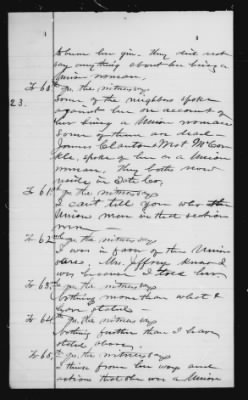 they did not
say anything about her being a
Union woman.
To 60th qr. the witness says
Some of the neighbors spoke
against her on account of
her being a Union woman
Some of them are dead —
James Clanton & Mot McCon
kle, spoke of her as a Union
woman. They both now
reside in State
To 61st qr. the witness says
I can't tell you who the
Union men in that section
were —
To 62nd qr. the witness says
I was in favor of the Union
cause. Mrs. Jeffrey knew I
was because I told her
To 63rd qr. the witness says
Nothing more than what I
have stated —
To 64th qr. the witness says
Nothing further than I have
stated above.
To 65th qr. the witness says
I think from her ways and
actions that she was a Union
23.